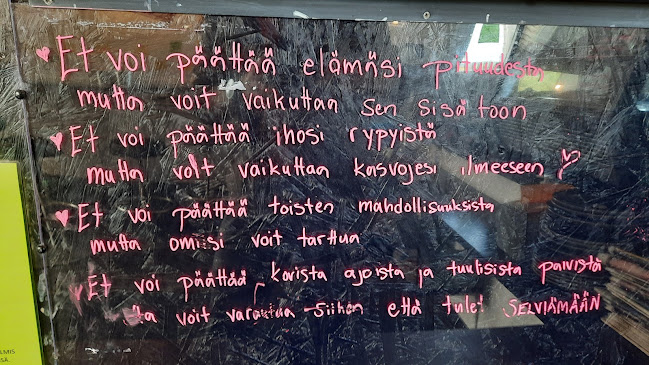 Et voi päättää elämäsi pituudesta
mutta voit vaikuttaa sen sisätoon
Et voi päättää ihosi rypyistä
mutta voit vaikuttaa kasvojesi ilmeeseen
Et voi päättää toisten mahdollisuuksista
mutta omiisi voit tarttua
Et voi päättää kovista ajoista ja tuulisista päivistä
voit varautua siihen että tulet SELVIÄMÄÄN